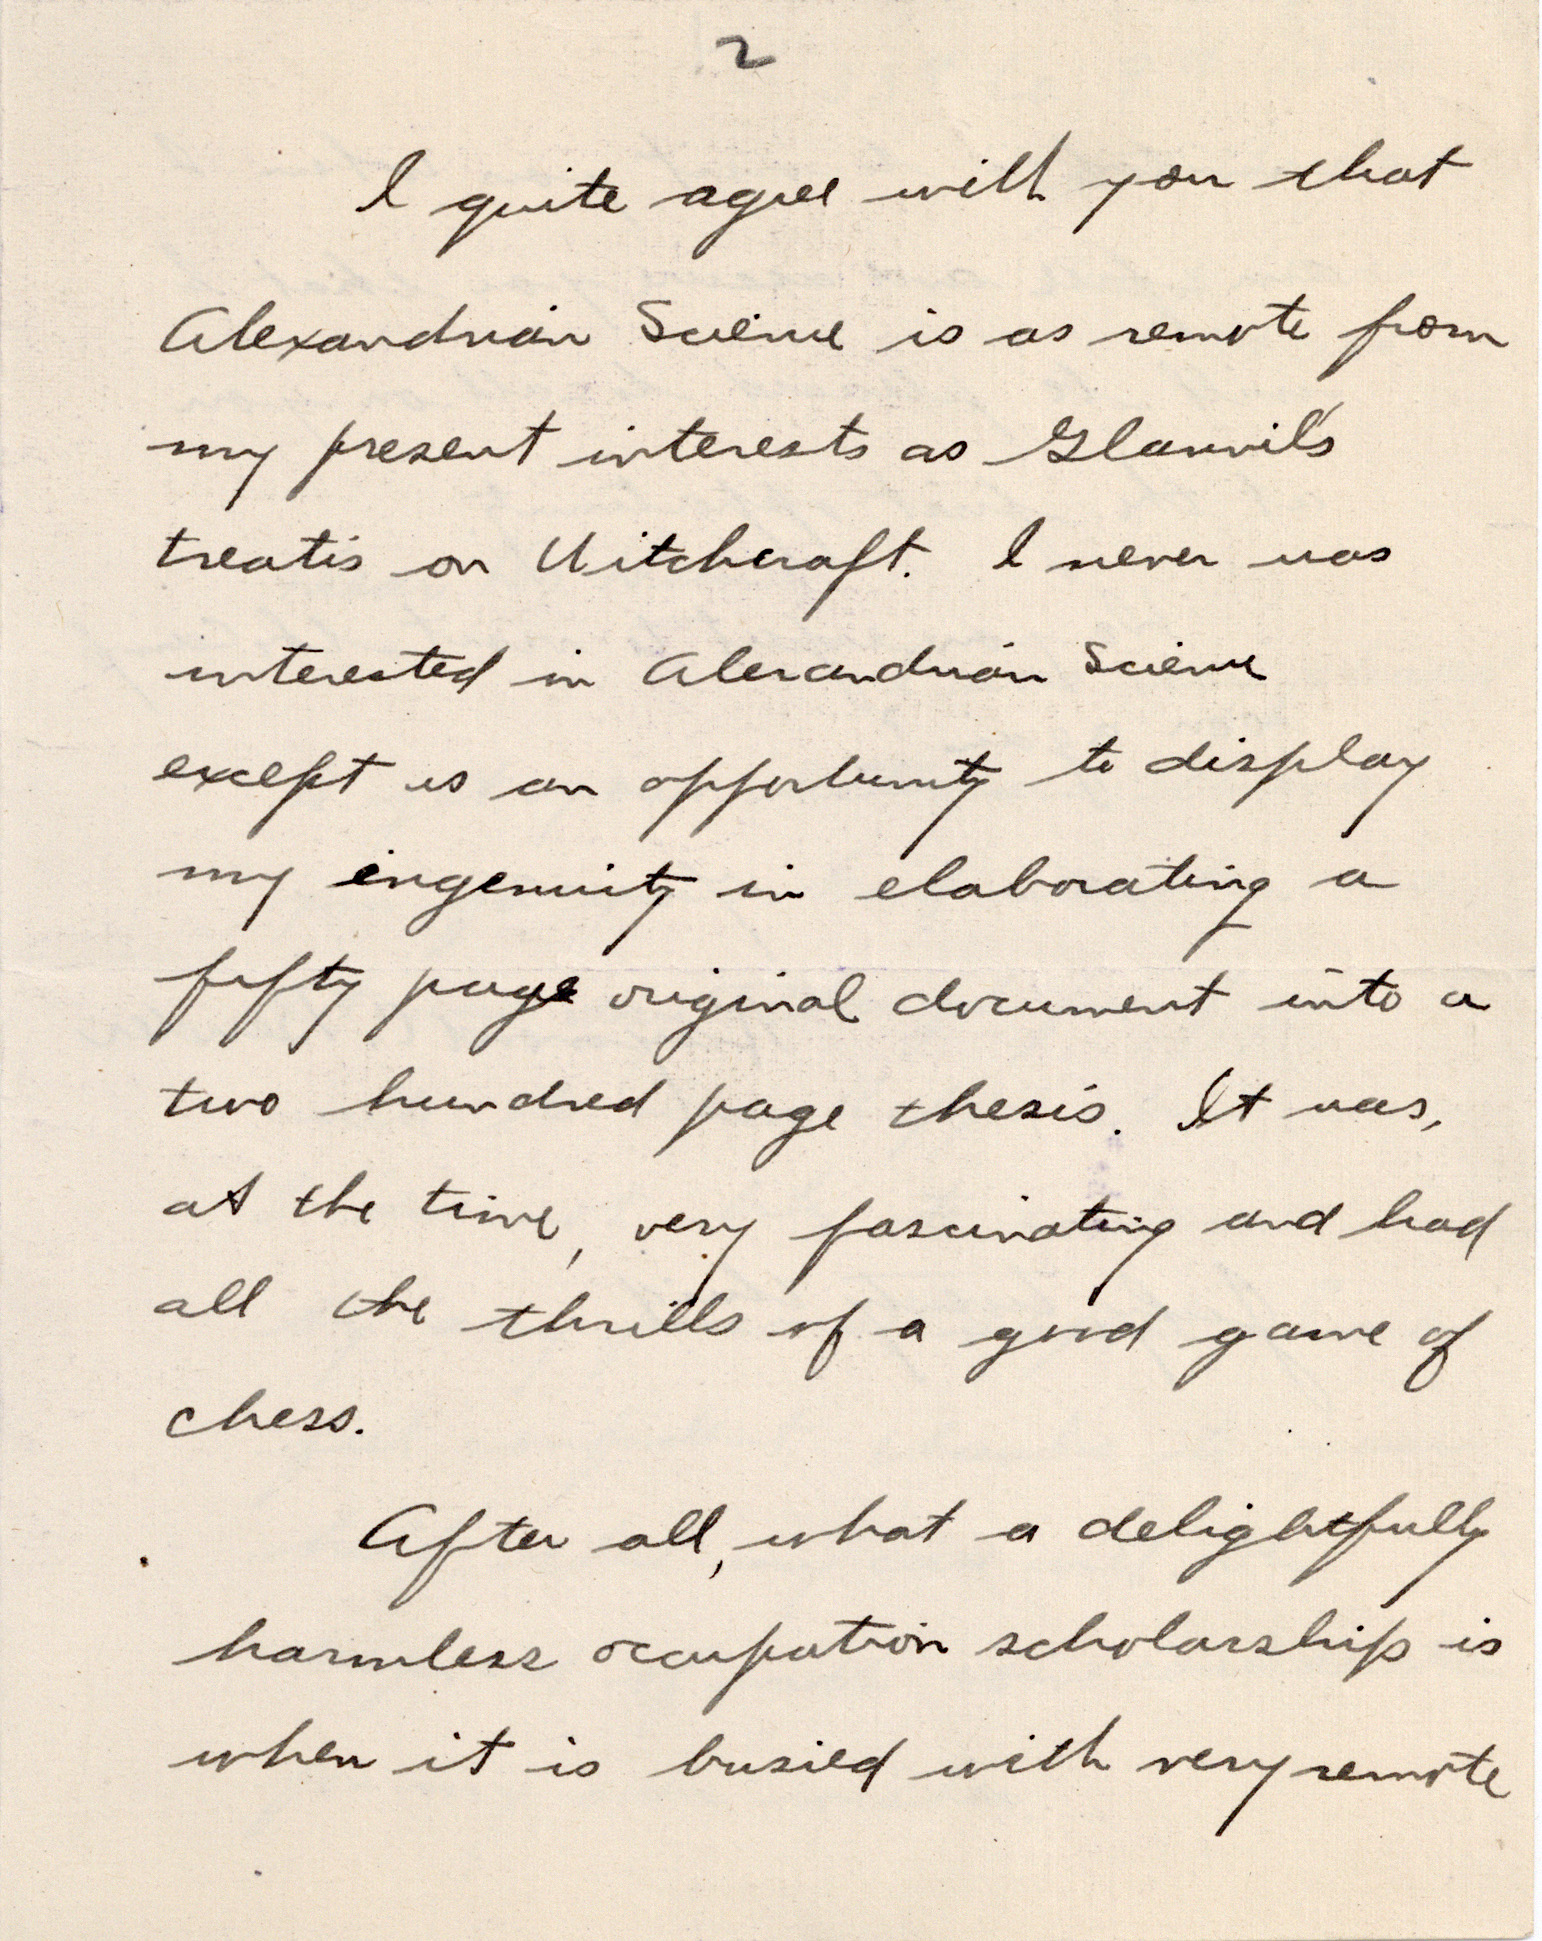 2
I quite agree with you that
Alexandrian Science is as remote from
my present interests as Glanvil's
treatis on Witchcraft. I never was
interested in Alexandrian Science
except as an opportunity to display
my ingenuity in elaborating a
fifty page original document into a
two hundred page thesis. It was,
at the time, very fascinating and had
all the thrills of a good game of
chess.
After all, what a delightfully
harmless occupation scholarship is
when it is busied with very remote